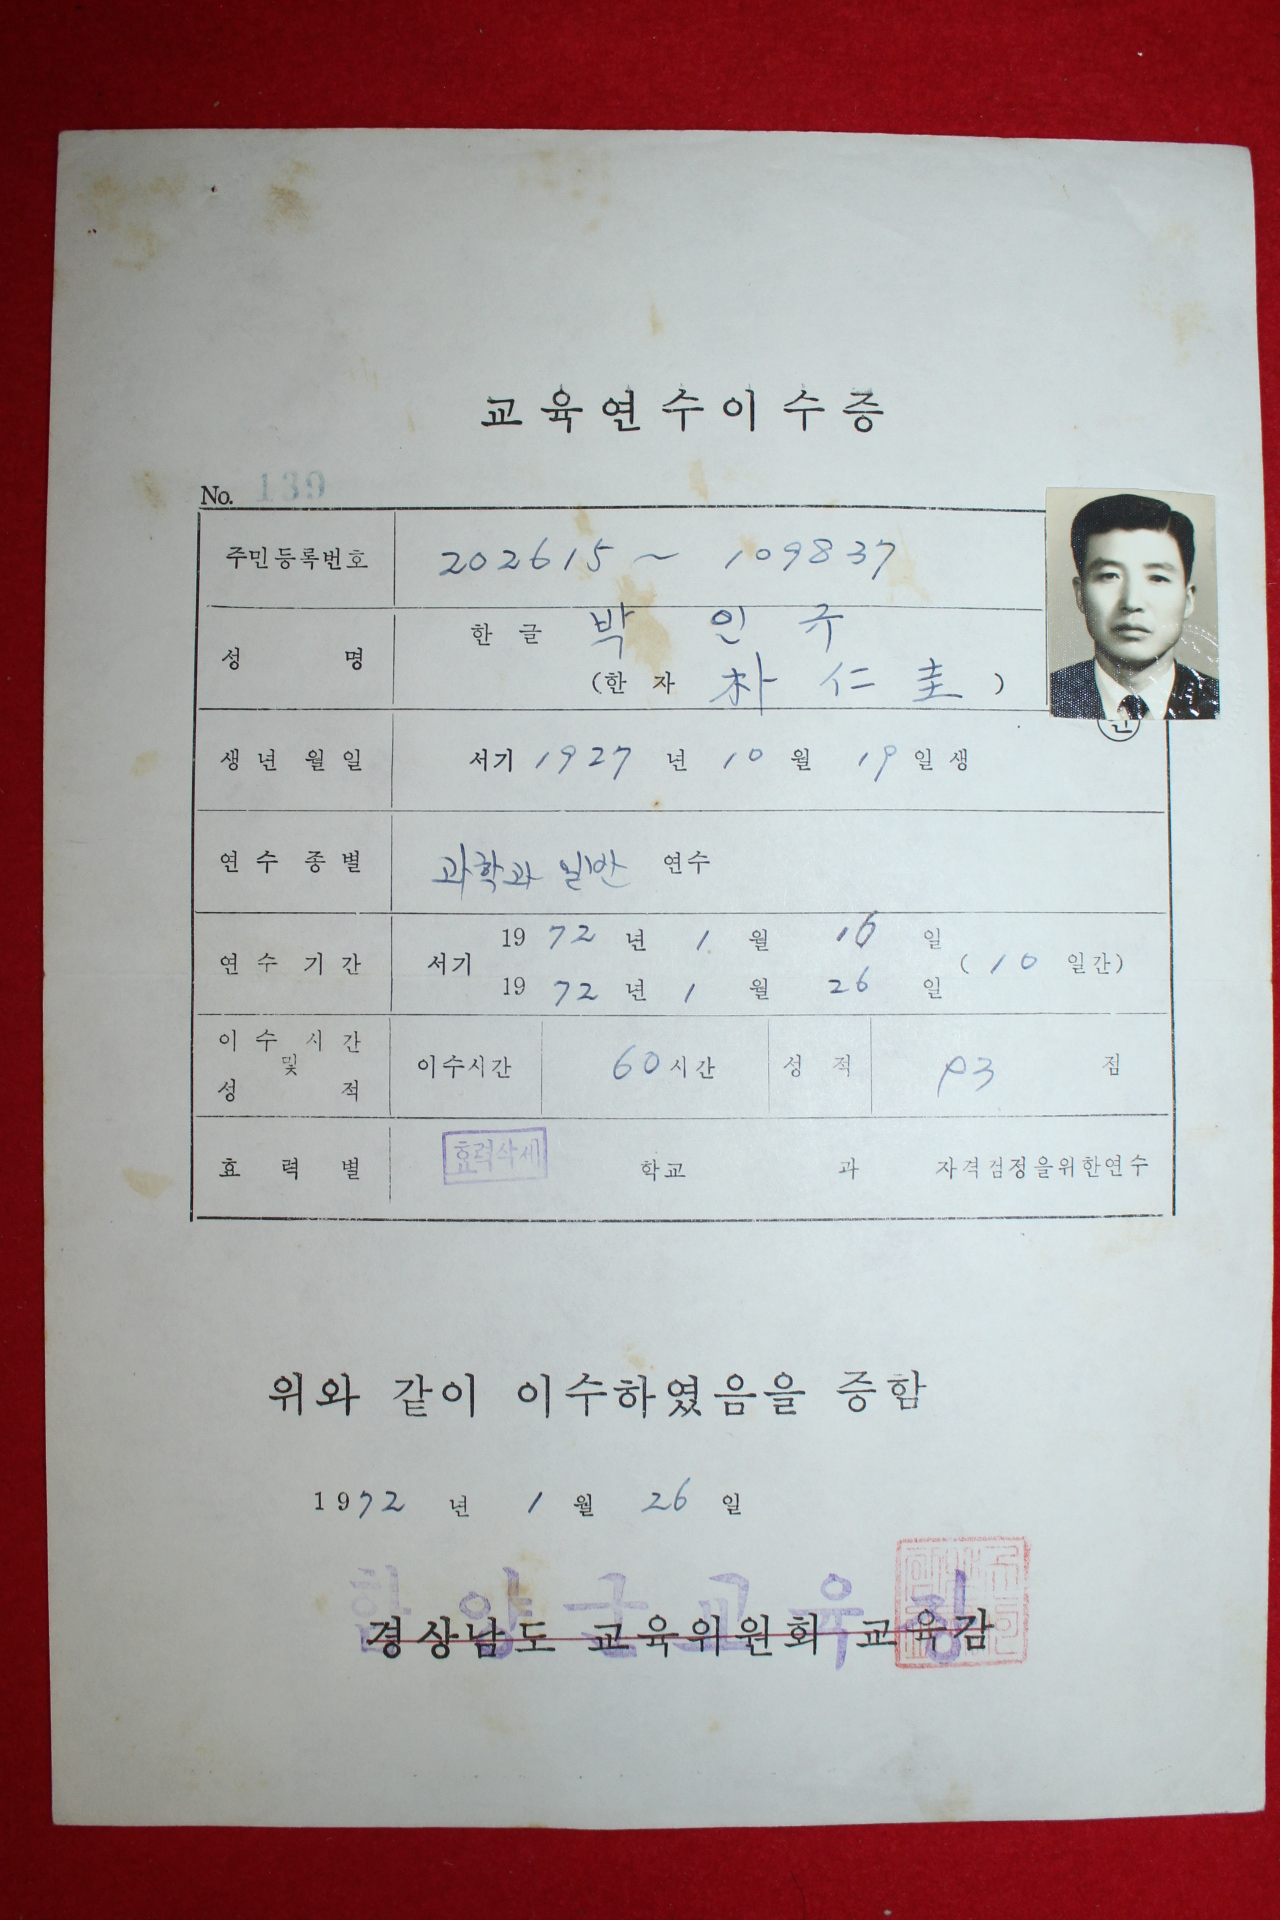 교육연수이수증
No. 139
주민등록번호 202615 ~ 109837
성 명 한글 박 인 규
(한자 朴 仁 圭 )
인
생년월일 서기 1927 년 10 월 19 일생
연수종별 과학과 일반 연수
연수기간 서기 1972 년 1 월 16 일
1972 년 1 월 26 일 ( 10 일간)
이수시간 및 성적 이수시간 60 시간 성적 93 점
효력별 효력삭제 학교 과 자격검정을위한연수
위와 같이 이수하였음을 증함
1972 년 1 월 26 일
함양군교육장
경상남도 교육위원회 교육감